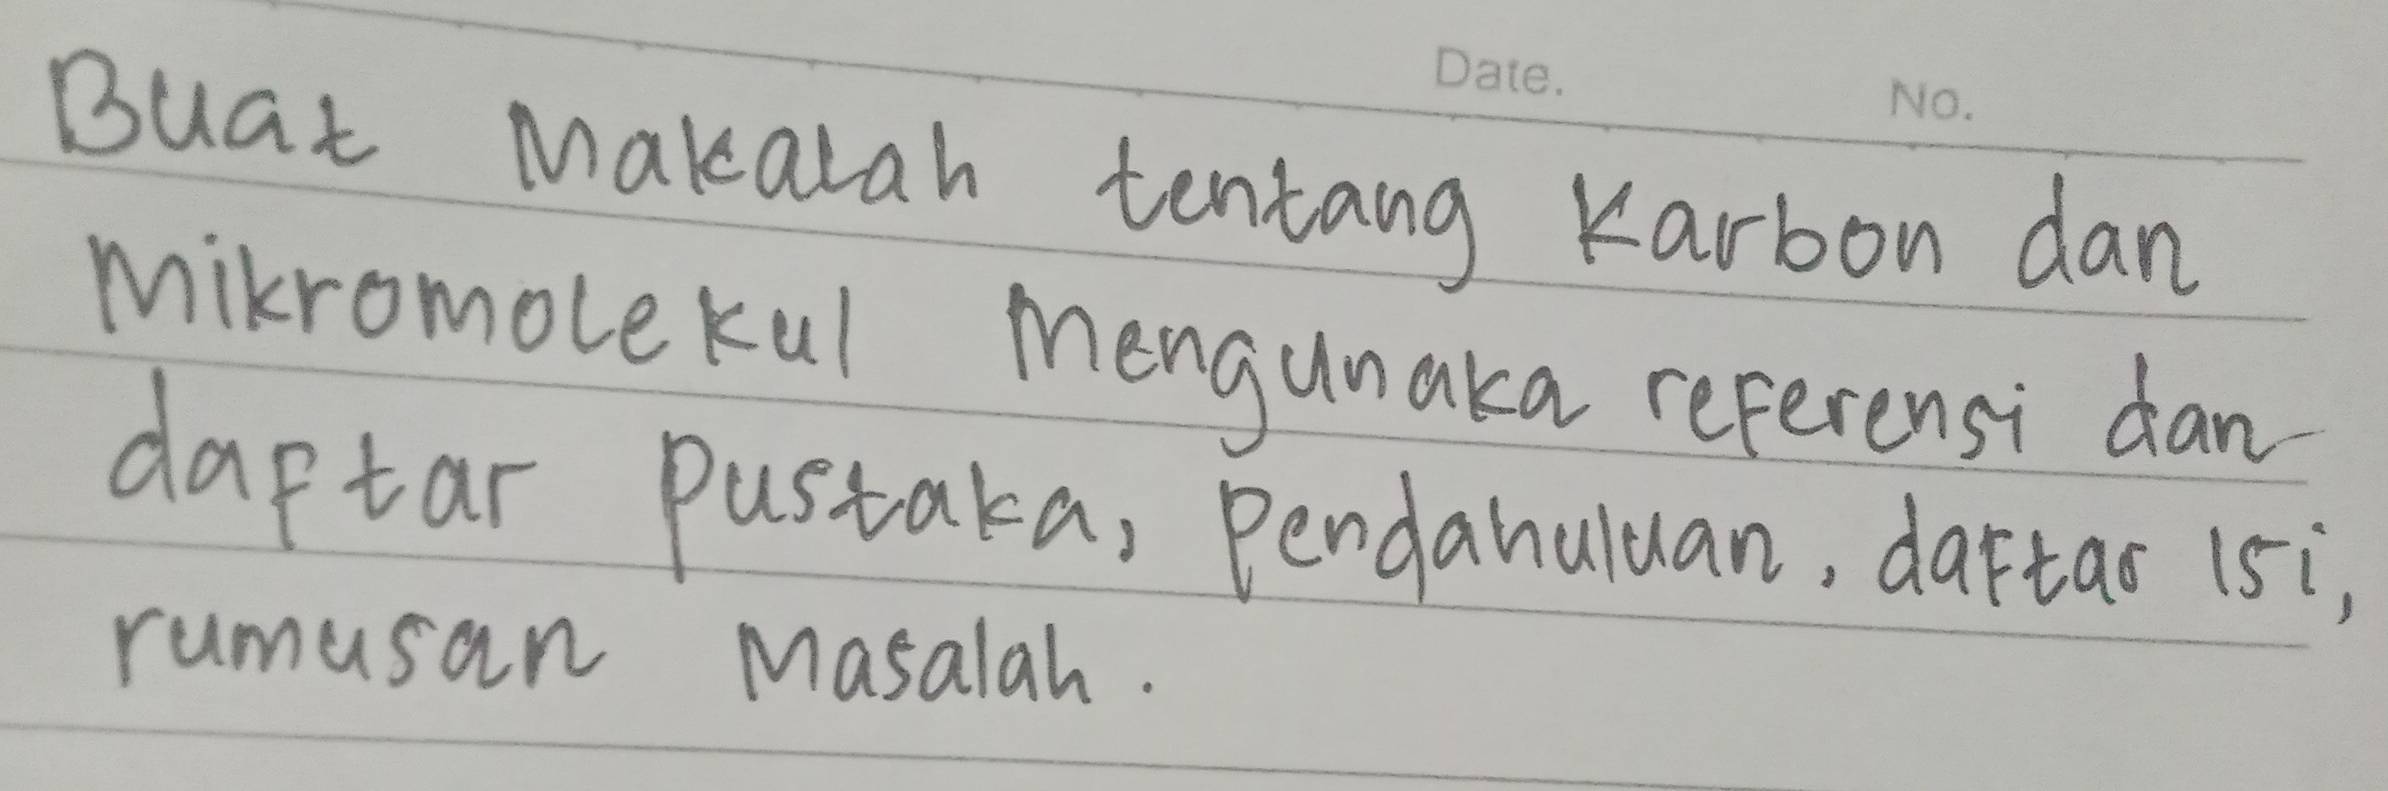 Date. No.
Buat Makalah tentang Karbon dan
Mikromolekul Mengunaka referensi dan
daftar Pustaka, Pendahuluan, daftar isi,
rumusan Masalah.